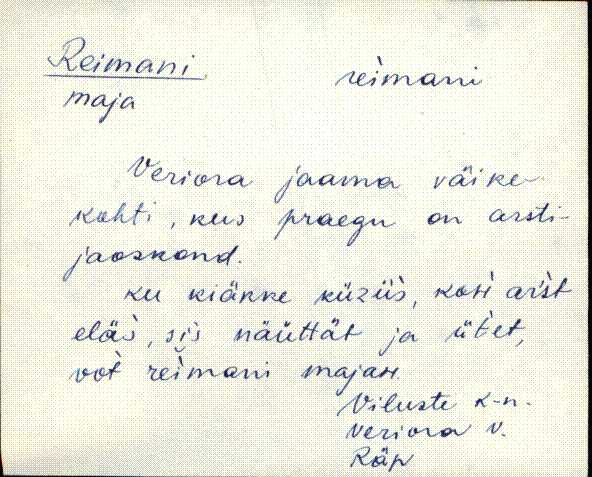 Reimani reìmani
maja
Veriora jaama väike-
kohti, kus praegu on arsti-
jaoskond.
ku kiäkke küzüs, kosʜ aŕst
eläs, sìs näüttät ja ütet,
vot reìmani majaʜ.
Viluste k-n.
Veriora v.
Räp